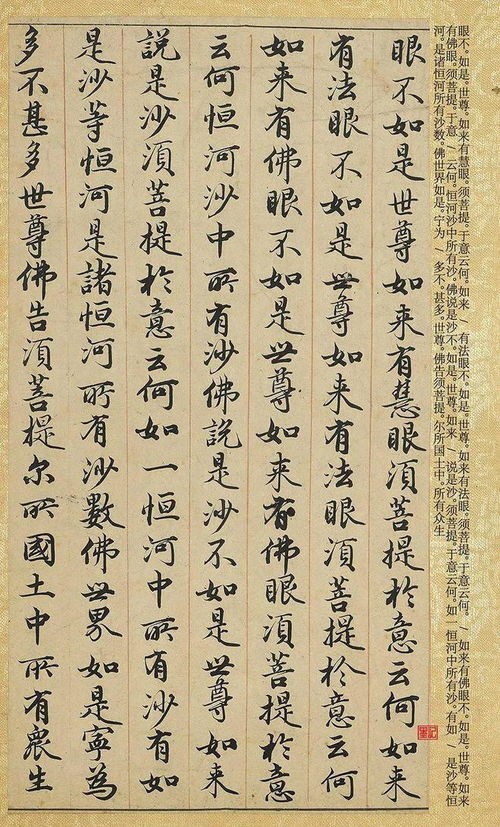 眼不。如是。世尊。如来有慧眼。须菩提。于意云何。如来 / 有法眼不。如是。世尊。如来有法眼。须菩提。于意云何。 / 如来有佛眼不。如是。世尊。如来
有佛眼。须菩提。于意 / 云何。恒河沙中所有沙。佛说是沙不。如是。世尊。如来 / 说是沙。须菩提。于意云何。如一恒河中所有沙。有如 / 是沙等恒
河。是诸恒河所有沙数。佛世界如是。宁为 / 多不。甚多。世尊。佛告须菩提。尔所国土中。所有众生
眼不如是世尊如来有慧眼須菩提於意云何如来
有法眼不如是世尊如来有法眼須菩提於意云何
如来有佛眼不如是世尊如来有佛眼須菩提於意
云何恒河沙中所有沙佛說是沙不如是世尊如来
說是沙須菩提於意云何如一恒河中所有沙有如
是沙等恒河是諸恒河所有沙數佛世界如是寧為
多不甚多世尊佛告須菩提尔所國土中所有衆生